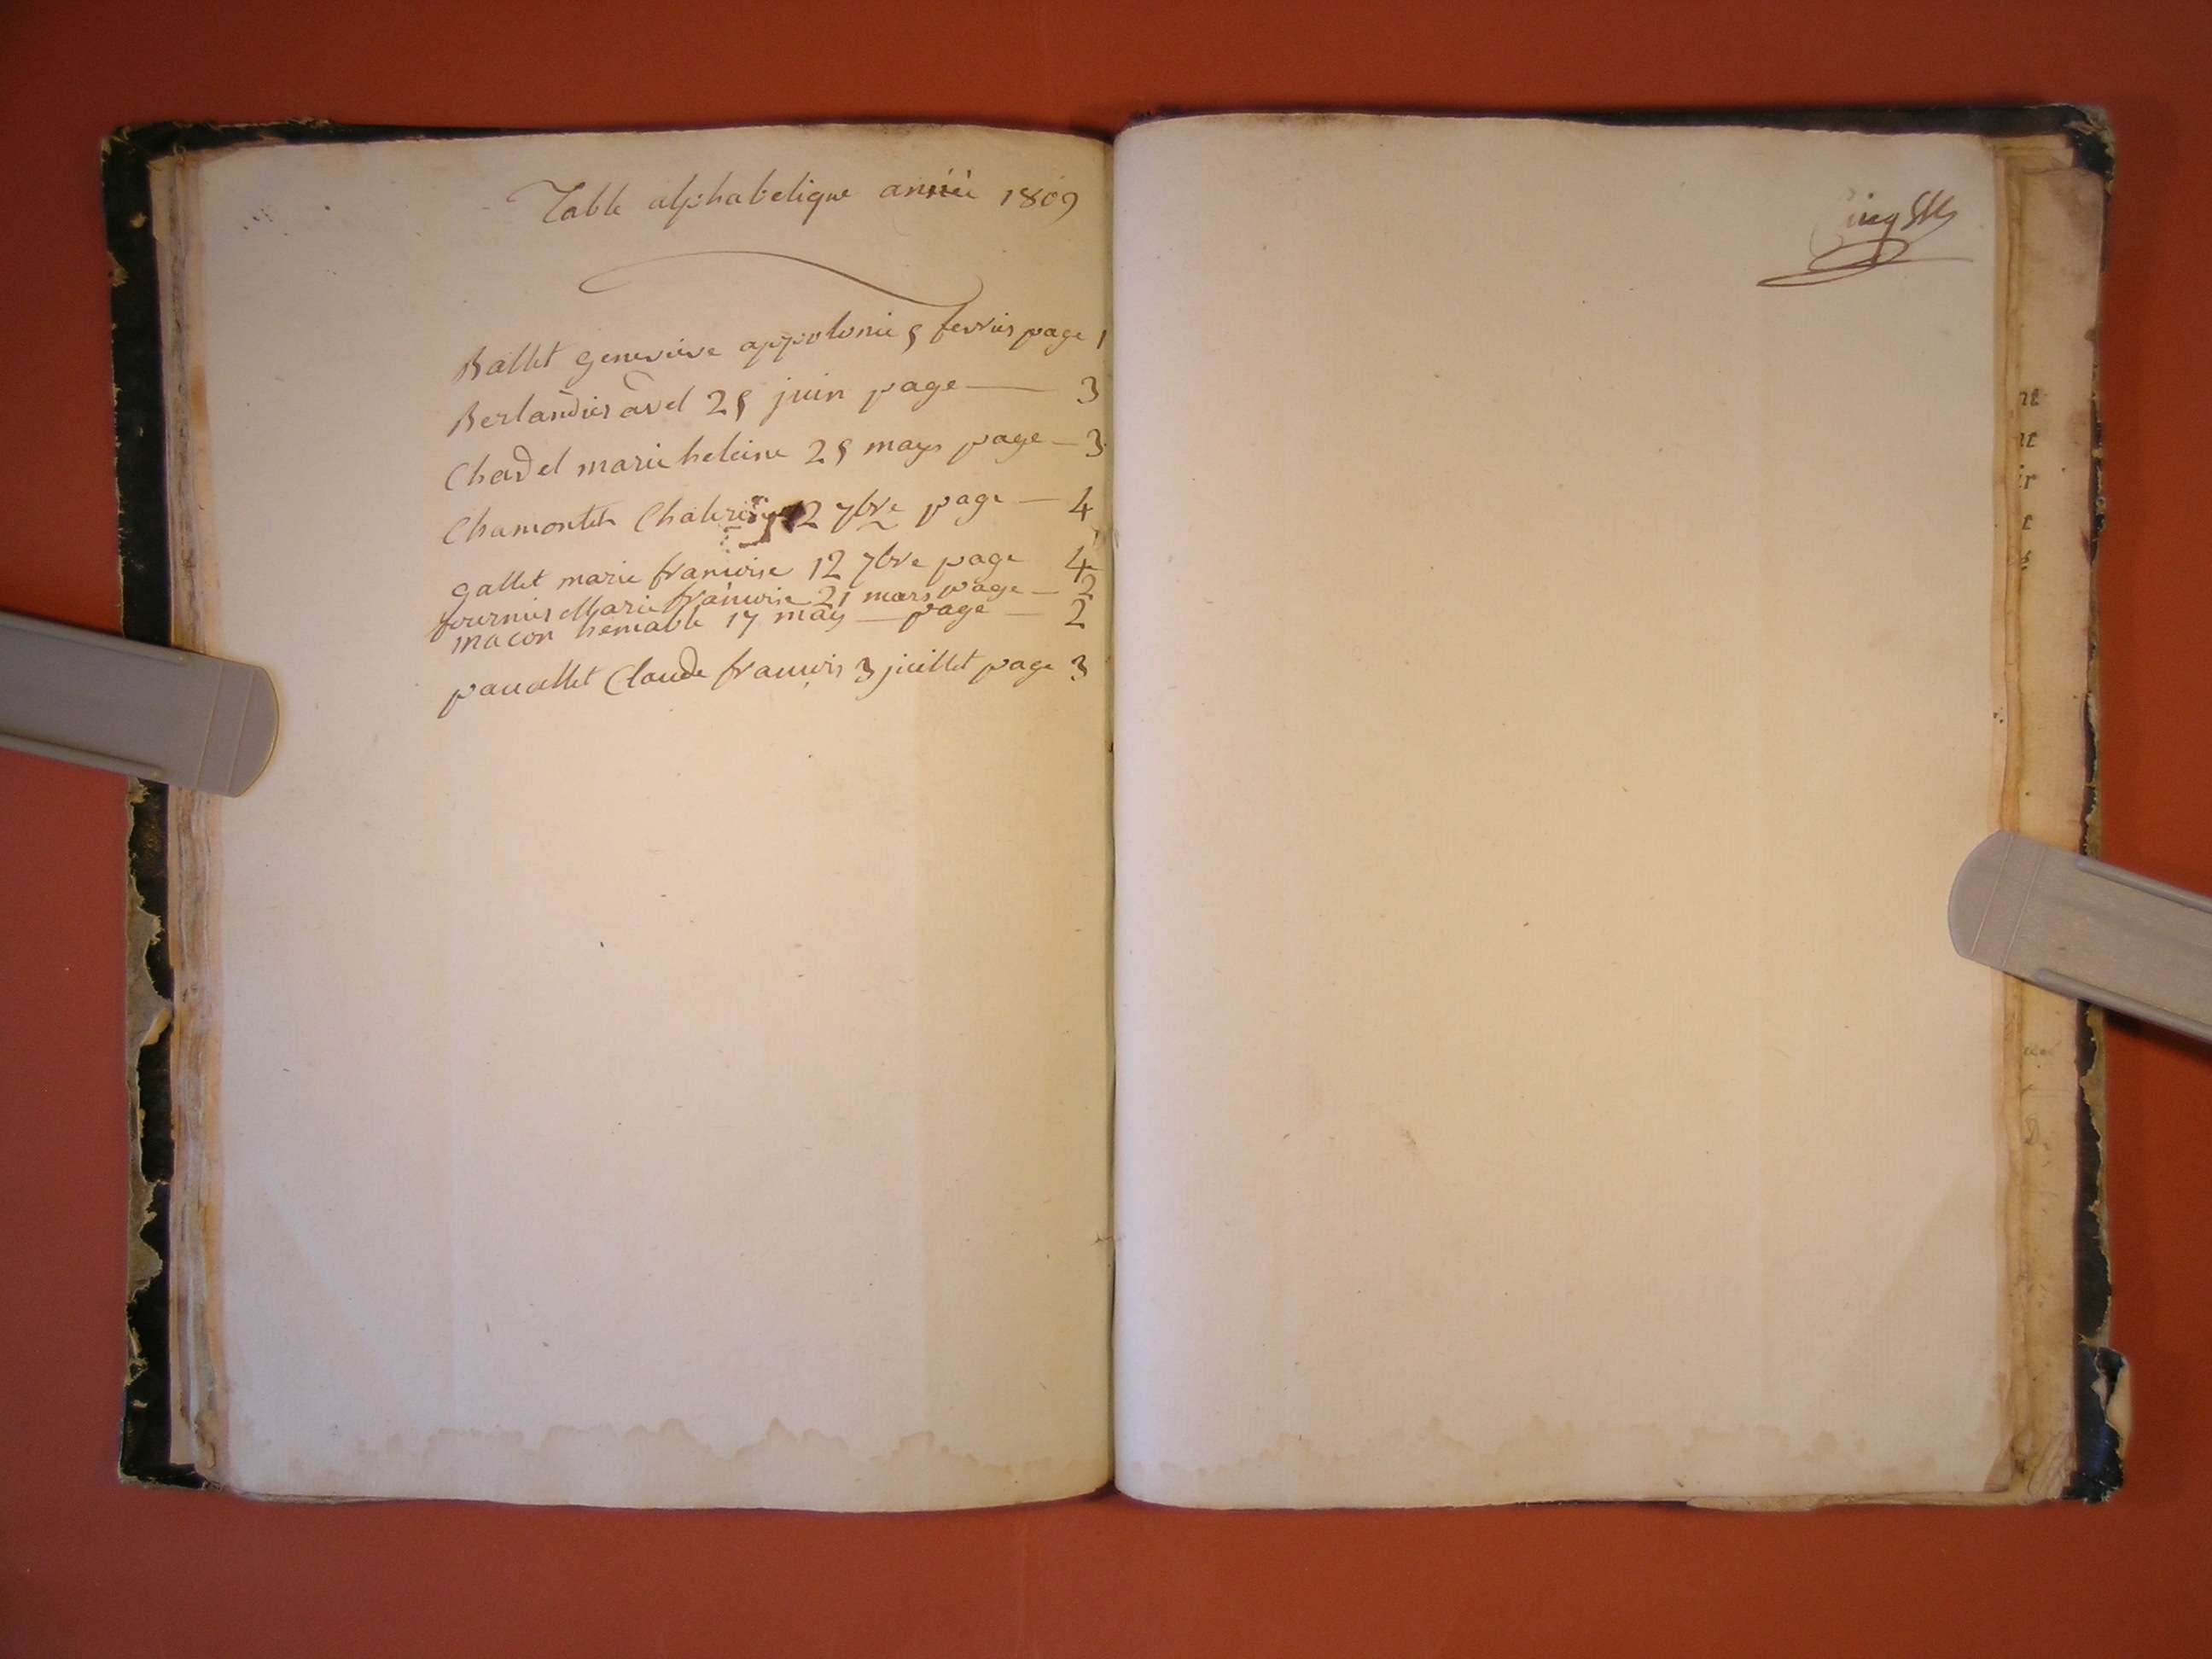 Table alphabetique année 1809
Ballet genevieve appolonie 5 fevrier page 1
Berlandier avel 25 juin page — 3
Chardel marie heleine 25 mays page — 3
Chamontet 12 7bre page — 4
gallet marie francoise 12 7bre page 4
fournier Marie francoise 21 mars page — 2
macon 17 may — page — 2
claude francois 3 juillet page 3
Cinq